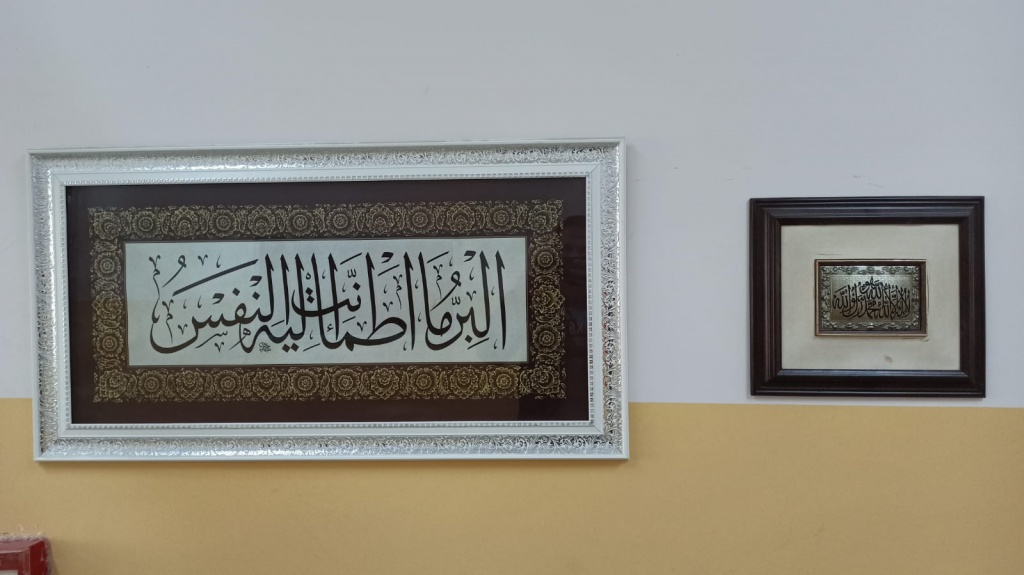 البِرُّ مَا اطْمَأَنَّتْ إِلَيْهِ النَّفْسُ
لا إله إلا الله محمد رسول الله